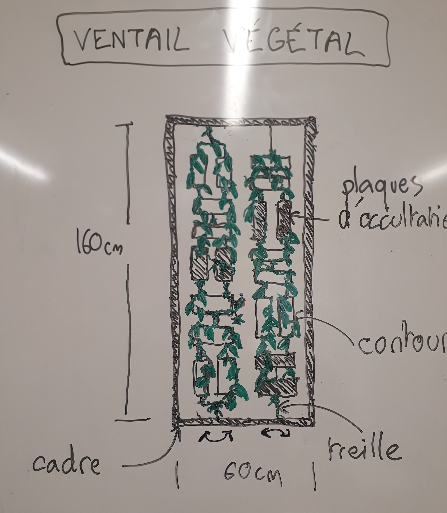 VENTAIL VÉGÉTAL
plaques
d'occultatio
160cm
contour
treille
cadre
60cm